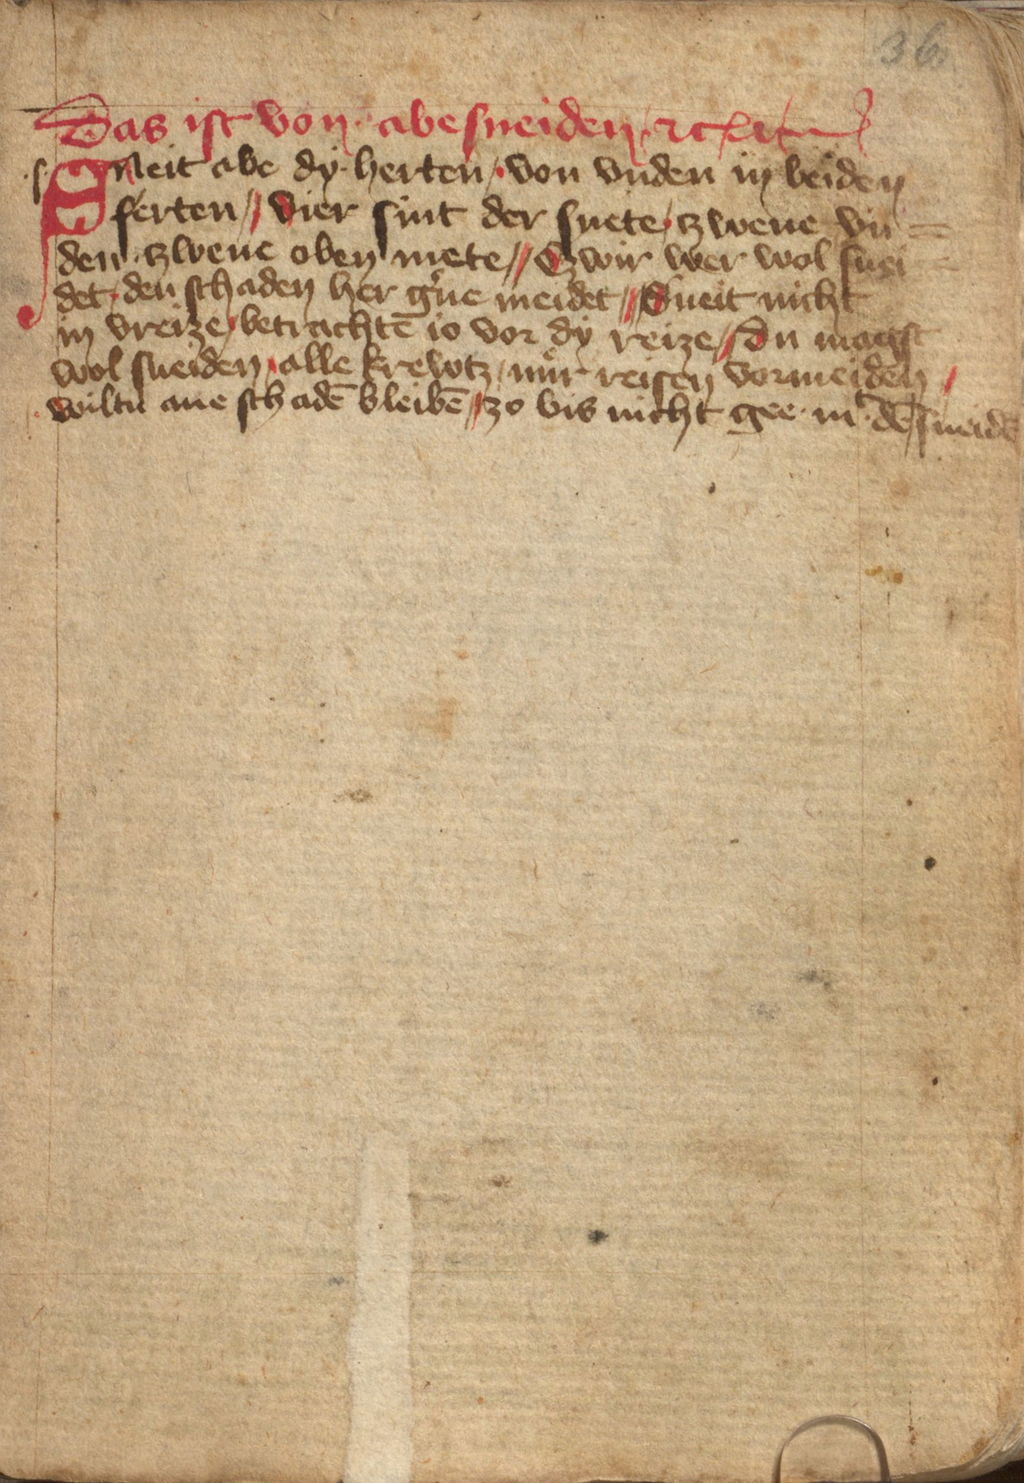 36
Das ist von abesneiden ꝛc
Sneit abe dy herten / von vnden in beiden
ferten // Vier sint der snete / tzwene vn=
den · tzwene oben mete // Tzwir wer wol snei=
det · den schaden her gͤne meidet // Sneit nicht
in vreize / betrachtē io vor dy reize // Du magst
wol sneiden / alle krewtz / nuͤr reisen vormeiden /
wiltu ane schadē bleibē // zo bis nicht gee · mt dē sneidē